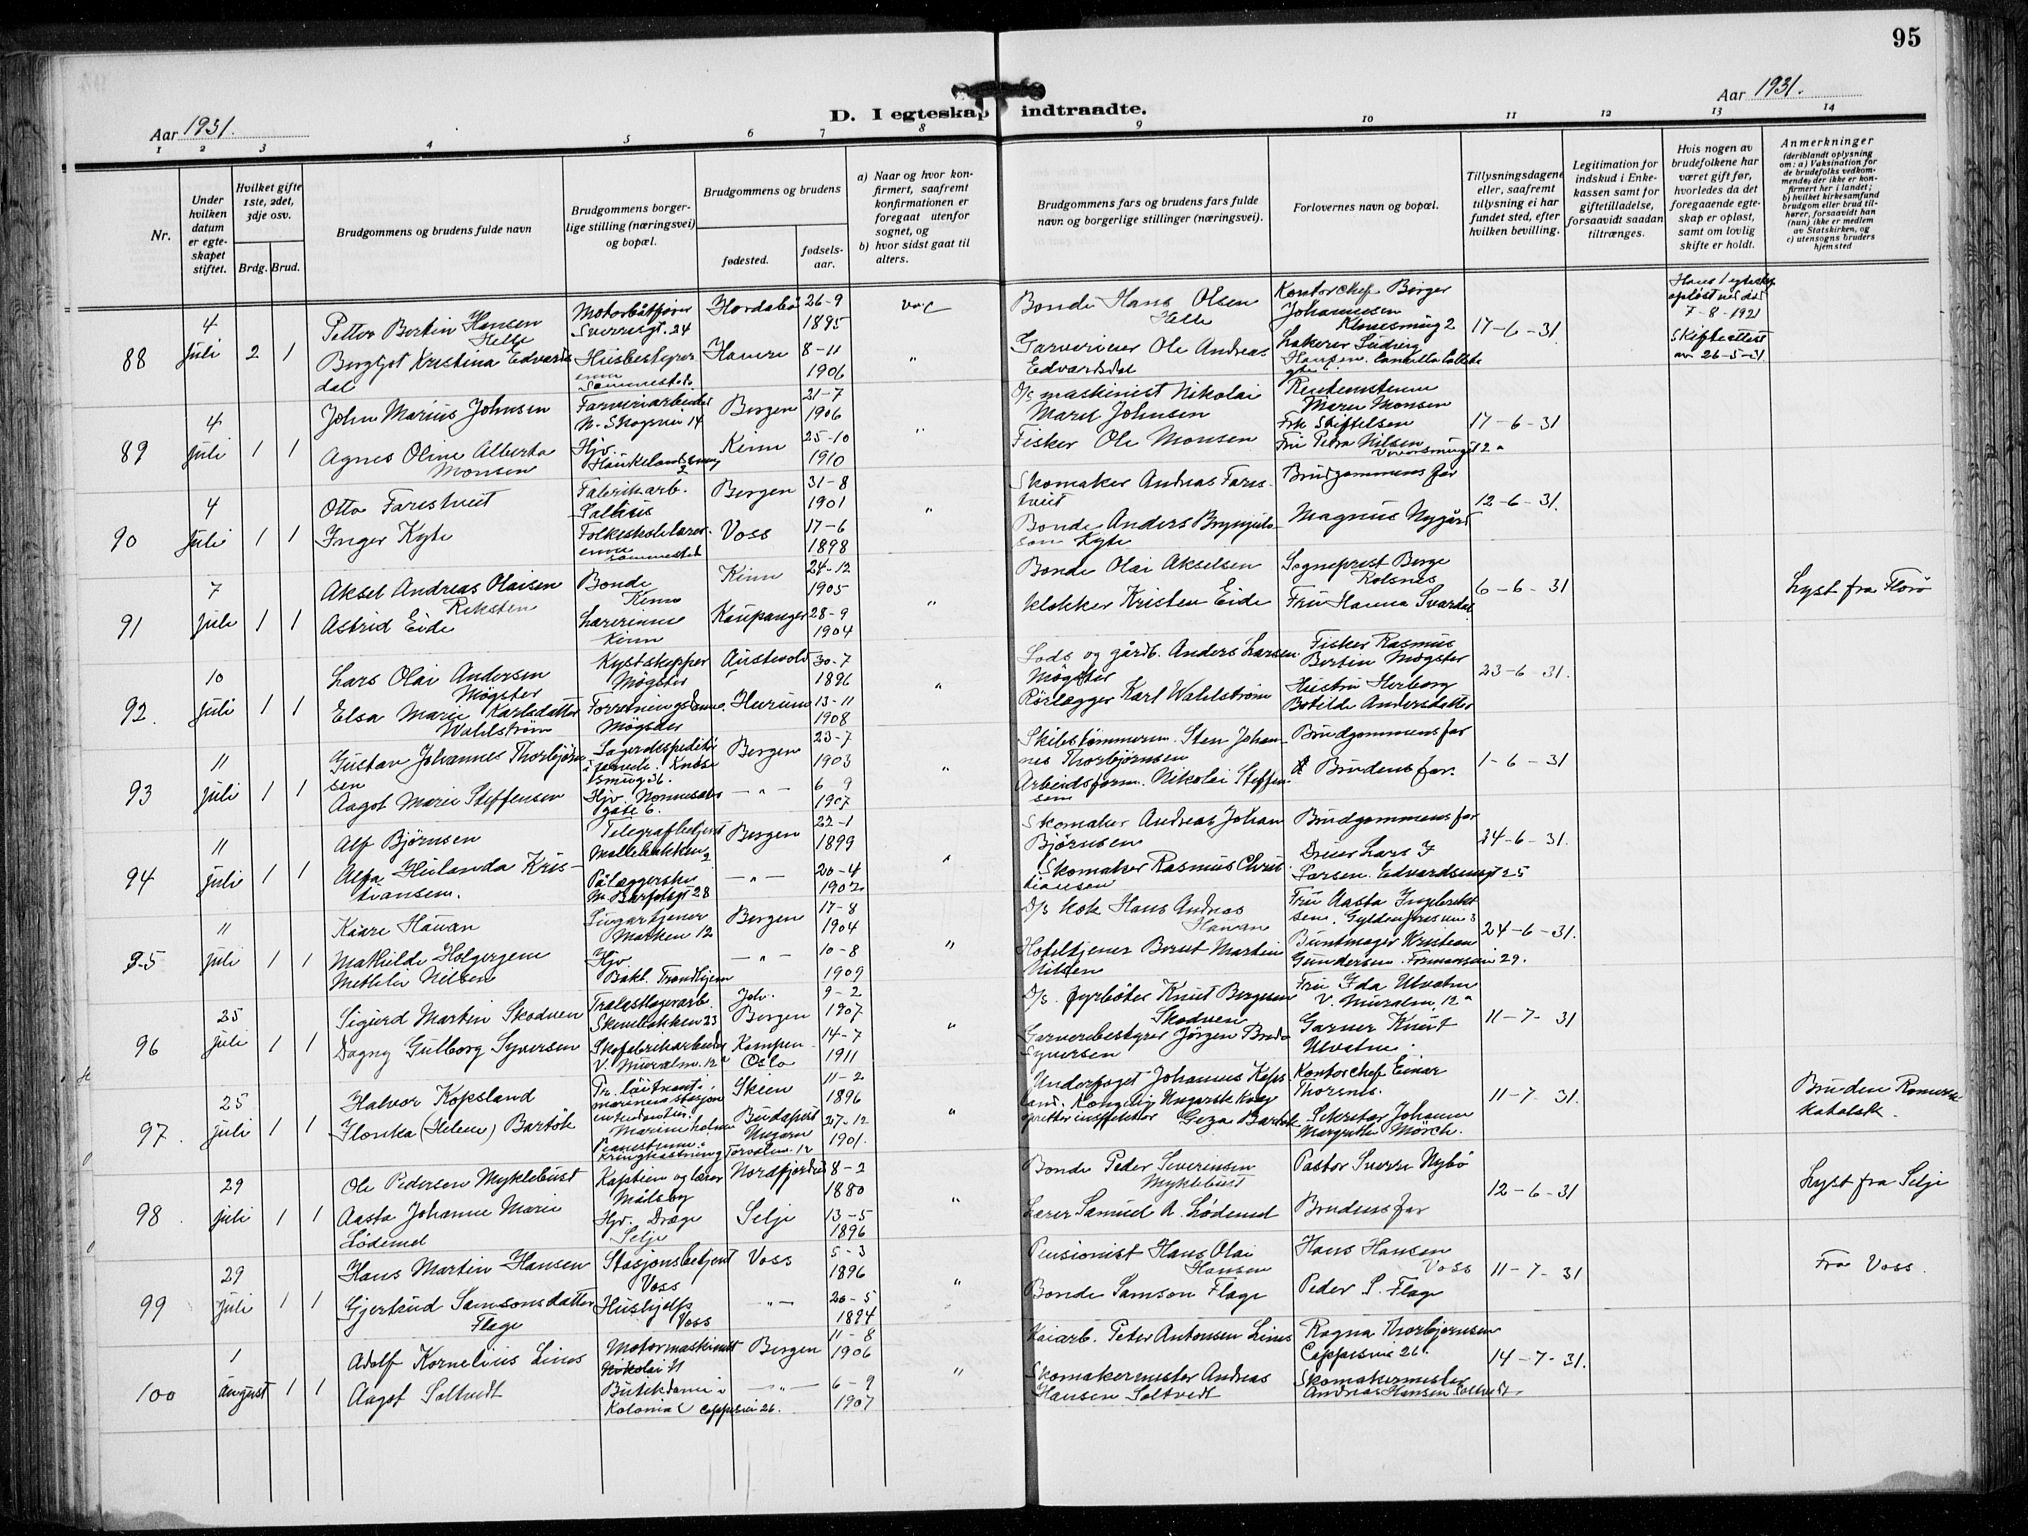 95
Aar 1931.
D. I egteskap indtraadte.
Aar 1931.
1 2 3 4 5 6 7 8 9 10 11 12 13 14
Nr.
Under hvilken datum er egteskapet stiftet.
Hvilket gifte 1ste, 2det, 3dje osv.
Brdg. Brud.
Brudgommens og brudens fulde navn
Brudgommens borgerlige stilling (næringsvei) og bopæl.
Brudgommens og brudens
fødested.
fødselsaar.
a) Naar og hvor konfirmert, saafremt konfirmationen er foregaat utenfor sognet, og
b) hvor sidst gaat til alters.
Brudgommens fars og brudens fars fulde navn og borgerlige stillinger (næringsvei).
Forlovernes navn og bopæl.
Tillysningsdagene eller, saafremt tillysning ei har fundet sted, efter hvilken bevilling.
Legitimation for indskud i Enkekassen samt for giftetilladelse, forsaavidt saadan tiltrænges.
Hvis nogen av brudefolkene har været gift før, hvorledes da det foregaaende egteskap er opløst, samt om lovlig skifte er holdt.
Anmerkninger
(deriblandt oplysning om: a) Vaksination for de brudefolks vedkommende, der ikke er konfirmert her i landet; b) hvilket kirkesamfund brudgom eller brud tilhører, forsaavidt han (hun) ikke er medlem av Statskirken, og c) utensogns bruders hjemsted
88 4 juli 2 1
Petter Bertin Hansen Helle
Motorbåtfører Sverresgt. 24
Hordabø 26-9 1895
Bonde Hans Olsen Helle
Kontorchef Birger Johannesen
17-6-31
opløst ved død 7-8-1921
Skifteattest av 26-5-31
Bergljot Kristina Edvardsdal
Husbestyrerinne sammesteds
8-11 1906
Garverieier Ole Andreas Edvardsdal
89 4 juli 1 1
John Marius Johnsen
Farveriarbeider N. Skogvei 14
Bergen 21-7 1906
D/s maskinist Nikolai Johnsen
Monsen
17-6-31
Agnes Oline Alberta Monsen
Hjv.
Kinn 25-10 1910
Fisker Ole Monsen
Fru Petra Nilsen
90 4 juli 1 1
Otto Farestveit
Fabrikarb.
Bergen 31-8 1901
Skomaker Andreas Farestveit
Brudgommens far
12-6-31.
Inger Kyte
Folkeskolelærerinne sammesteds
Voss 17-6 1898
Bonde Anders Brynjulfson Kyte
Magnus Nygård
91 7 juli 1 1
Aksel Andreas Olaisen Reksten
Bonde Kinn
Kinn 24-12 1905
Bonde Olai Akselsen
Sogneprest Berge Rolsnes
6-6-31
Lyst fra Florø
Astrid Eide
Lærerinne Kinn
Kaupanger 28-9 1904
Klokker Kristen Eide
Fru Hanna Svardal
92. 10 juli 1 1
Lars Olai Andersen Møgster
Kystskipper Møgster
Austevold 30-7 1896
Lods og gårdb. Anders Larsen Møgster
Fisker Rasmus Bertin Møgster
23-6-31.
Elsa Marie Karlsdatter Wahlstrøm
Møgster
Hurum 13-11 1908
Rørlegger Karl Wahlstrøm
Hustru Herborg Botilde Andersdatter
93 11 juli 1 1
Gustav Johannes Thorbjørnsen
Bergen 23-7 1903
Sten Johannes Thorbjørnsen
Brudgommens far
1-6-31
Aagot Marie Steffensen
Hjv. Nonnesetergate 6.
— " — 6-9 1907
Arbeidsform. Nikolai Steffensen
Brudens far.
94 11 juli 1 1
Alf Bjørnsen
Telegrafbetjent Møllebakken 2
Bergen 22-1 1899
Skomaker Andreas Johan Bjørnsen
Brudgommens far
24-6-31.
Alfa Hulanda Kristiansen.
Pålæggerske
— " — 20-4 1902
Skomaker Rasmus Christiansen
Larsen. Edvardsensgt 25
95 11 juli 1 1
Kaare Hauan
Marken 12
Bergen 17-8 1904
D/s kok Hans Andreas Hauan
Fru Aasta Ingebriktsen.
24-6-31.
Mathilde Holgerine Nilsen
Hjv
— " — 10-8 1909
Hotelltjener Bernt Martin Nilsen
Buntmager Kristian Gundersen. 29.
96 25 juli 1 1
Sigurd Martin Skodven
Trælastlagerarb. Skivebakken 23
Joh. Bergen 9-2 1907
D/s. fyrbøter Knut Bergesen Skodven
Fru Ida Ulvatn V. Muralm. 12a
11-7-31
Dagny Gulborg Syversen
Skofabrikarbeider V. Muralm. 12a
Kampen Oslo 14-7 1911
Garveribestyrer Jørgen Syversen
Garver Knut Ulvatn.
97. 25 juli 1 1
Halvor Kopsland
Pr. løitnant, marinestasjon Marineholmen
Skien 11-2 1896
Underfoget Johannes Kopsland.
Kontorchef Einar Thorenes.
11-7-31.
Bruden Romersk katolsk.
Ilonka (Helene) Bartök
Pianistinne. Kringkastning Torvalm. 12
Budapest Ungarn 27-12 1901.
Kongelig Ungarsk Geza Bartök
Sekretær Johanne Margrethe Mørch.
98. 29 juli 1 1
Ole Pedersen Myklebust
Kaptein og lærer Måløy
Nordfjordeid 8-2 1880
Bonde Peder Severinsen Myklebust
Pastor Sverre Nybø
12-6-31
Lyst fra Selje
Aasta Johanne Marie Lødemel
Hjv. Drage Selje
Selje 13-5 1896
Lærer Samuel A. Lødemel
Brudens far
99 29 juli 1 1
Hans Martin Hansen
Stasjonsbetjent Voss
Voss 5-3 1896
Pensionist Hans Olai Hansen
Hans Hansen Voss
11-7-31
Fra Voss.
Gjertrud Samsonsdatter Flage
Hushjelp Voss
— " — 20-5 1894
Bonde Samson Flage
Peder S. Flage
100 1 august 1 1
Adolf Kornelius Lines
Motormaskinist
Bergen 11-8 1906
Kaiarb. Peter Antonsen Lines
Ragna Thorbjørnsen Cappesvei 26.
14-7-31.
Aagot Soltvedt
Butikkdame i Kolonial Cappesvei 26.
— " — 6-9 1907
Skomakermester Andreas Hansen Soltvedt
Skomakermester Andreas Hansen Soltvedt.